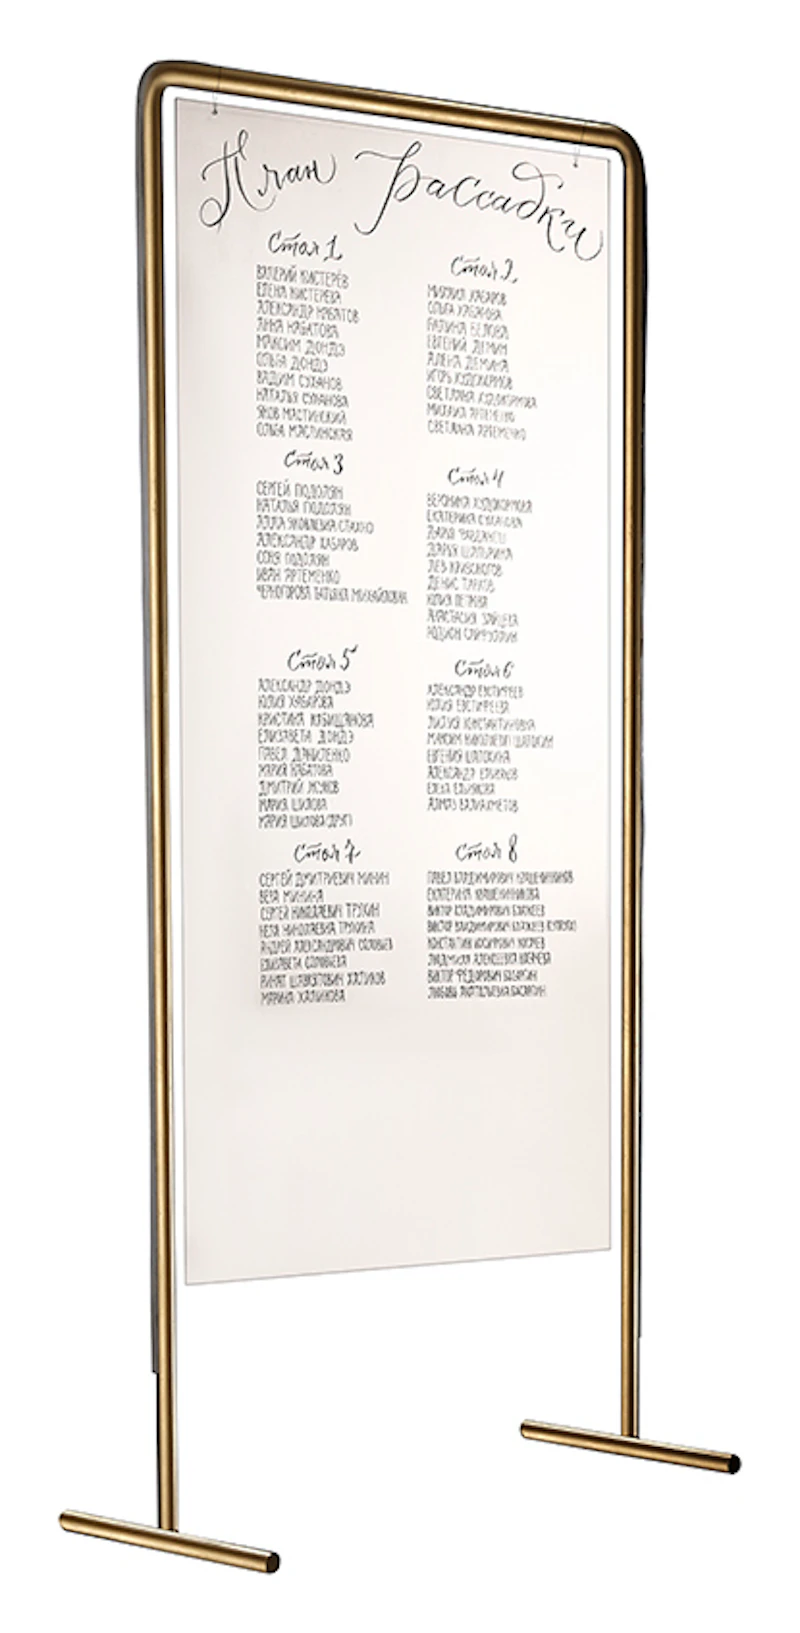 План Рассадки
Стол 1
ВАЛЕРИЙ КИСТЕРЁВ
ЕЛЕНА КИСТЕРЕВА
АЛЕКСАНДР НАБАТОВ
АННА НАБАТОВА
МАКСИМ ДОНДЭ
ОЛЬГА ДОНДЭ
ВАДИМ СУХАНОВ
НАТАЛЬЯ СУХАНОВА
ЯКОВ МАСТИНСКИЙ
ОЛЬГА МАСТИНСКАЯ
Стол 2
МИХАИЛ ХАБАРОВ
ОЛЬГА ХАБАРОВА
ГАЛИНА БЕЛОВА
ЕВГЕНИЙ ДЕМИН
АЛЕНА ДЕМИНА
ИГОРЬ ХУДОКОРМОВ
СВЕТЛАНА ХУДОКОРМОВА
МИХАИЛ АРТЕМЕНКО
СВЕТЛАНА АРТЕМЕНКО
Стол 3
СЕРГЕЙ ПОДОЛЯН
НАТАЛЬЯ ПОДОЛЯН
АЛЛА ЯКОВЛЕВНА
АЛЕКСАНДР ХАБАРОВ
СОНЯ ПОДОЛЯН
ИВАН АРТЕМЕНКО
ЧЕРНОГОРОВА ТАТЬЯНА МИХАЙЛОВНА
Стол 4
ВЕРОНИКА ХУДОКОРМОВА
ЕКАТЕРИНА СУХАНОВА
ДАРЬЯ
ДАРЬЯ ШАПЫРИНА
ЛЕВ КРИВОНОГОВ
ДЕНИС
ЮЛИЯ ПЕТРОВА
АНАСТАСИЯ ЗАЙЦЕВА
РОДИОН САЙФУЛЛИН
Стол 5
АЛЕКСАНДР ДОНДЭ
ЮЛИЯ ХАБАРОВА
КРИСТИНА КАБИЩАНОВА
ЕЛИЗАВЕТА ДОНДЭ
ПАВЕЛ ДАНИЛЕНКО
МАРИЯ НАБАТОВА
ДМИТРИЙ ЖУКОВ
МАРИЯ ШИЛОВА
МАРИЯ ШИЛОВА (ДРУГ)
Стол 6
АЛЕКСАНДР ЕВСТИФЕЕВ
ЮЛИЯ ЕВСТИФЕЕВА
ЛИЛИЯ КОНСТАНТИНОВНА
МАКСИМ НИКОЛАЕВИЧ ШАПОКИН
ЕВГЕНИЯ ШАПОКИНА
АЛЕКСАНДР ЕЛИЯКОВ
ЕЛЕНА ЕЛИЯКОВА
АЛМАЗ ВАЛИАХМЕТОВ
Стол 7
СЕРГЕЙ ДМИТРИЕВИЧ МИНИН
ВЕРА МИНИНА
СЕРГЕЙ НИКОЛАЕВИЧ ТРУХИН
НИКОЛАЕВНА ТРУХИНА
АНДРЕЙ АЛЕКСАНДРОВИЧ СОЛОВЬЕВ
ЕЛИЗАВЕТА СОЛОВЬЕВА
РИНАТ ШАВКЯТОВИЧ ХАЛИКОВ
МАРИНА ХАЛИКОВА
Стол 8
ПАВЕЛ ВЛАДИМИРОВИЧ КРАШЕНИННИКОВ
ЕКАТЕРИНА КРАШЕНИННИКОВА
ВИКТОР ВЛАДИМИРОВИЧ
ВИКТОР ВЛАДИМИРОВИЧ
КОНСТАНТИН
ЛЮДМИЛА АЛЕКСЕЕВНА
ВИКТОР ФЕДОРОВИЧ БАСАРГИН
ЛЮБОВЬ АНАТОЛЬЕВНА БАСАРГИН